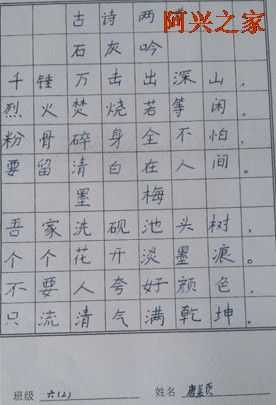 阿兴之家
古诗两
石灰吟
千锤万击出深山，
烈火焚烧若等闲。
粉骨碎身全不怕，
要留清白在人间。
墨梅
吾家洗砚池头树，
个个花开淡墨痕。
不要人夸好颜色，
只流清气满乾坤。
班级 六(2) 姓名